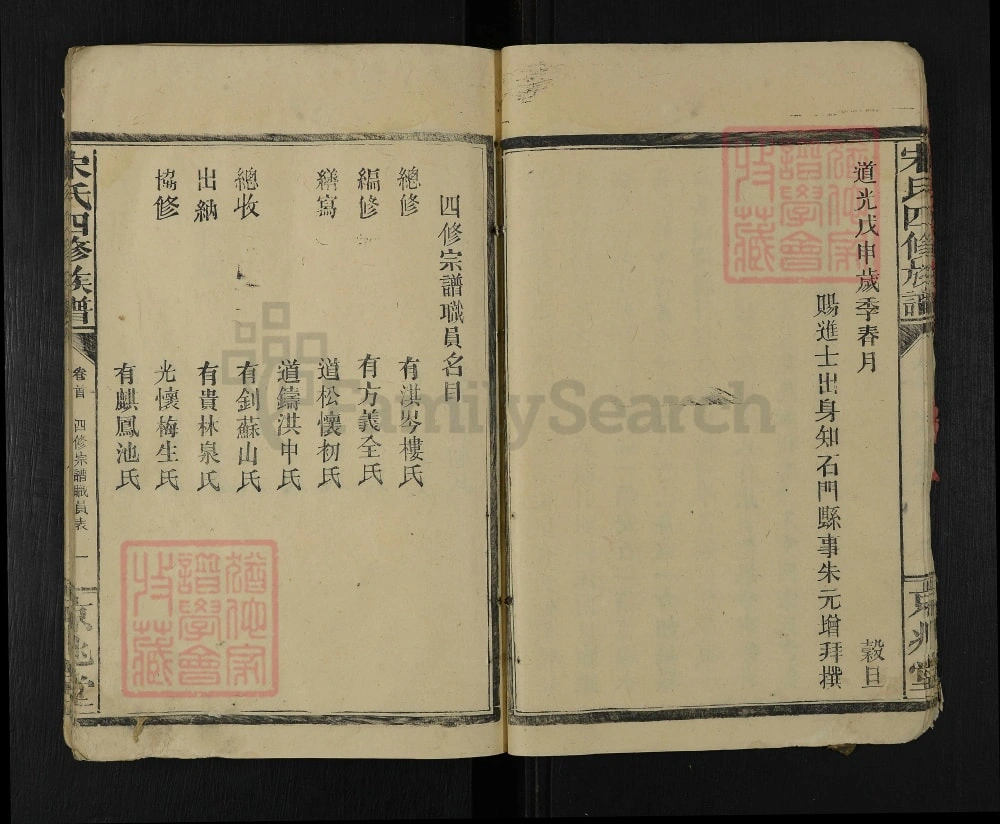 宋氏四修族譜
京兆堂
道光戊申歲季春月
穀旦
賜進士出身知石門縣事朱元增拜撰
四修宗譜職員名目
總修
有淇岑樓氏
編修
有方義全氏
繕寫
道松懷初氏
道鑄洪申氏
總收
有釗蘇山氏
出納
有貴林泉氏
協修
光懷梅生氏
有麒鳳池氏
宋氏四修族譜
卷首
四修宗譜職員表
一
京兆堂
猶他家譜學會收藏
猶他家譜學會收藏
FamilySearch